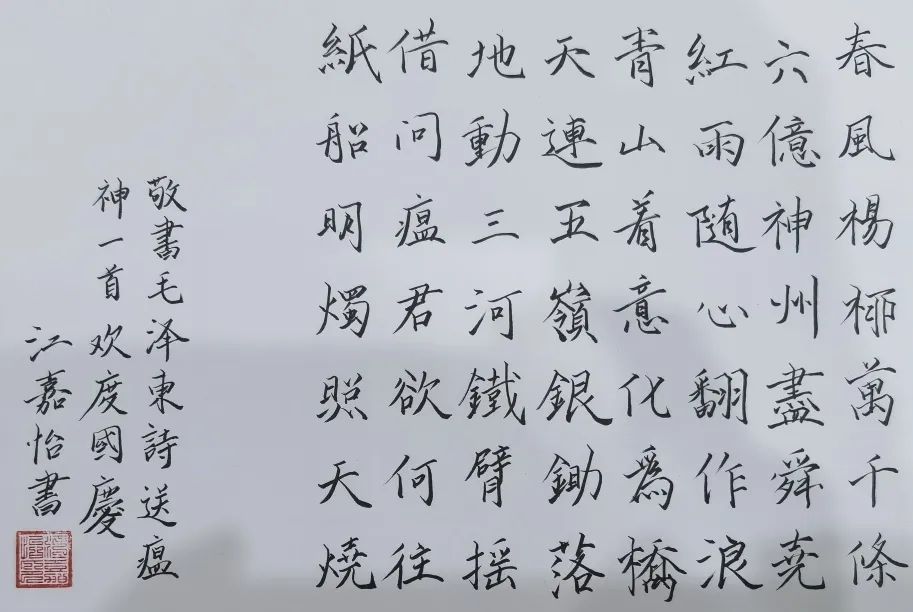 春風楊栁萬千條
六億神州盡舜堯
紅雨随心翻作浪
青山着意化為橋
天連五嶺銀鋤落
地動三河鐵臂摇
借问瘟君欲何往
紙船明燭照天燒
敬書毛泽東詩送瘟
神一首欢度國慶
江嘉怡書